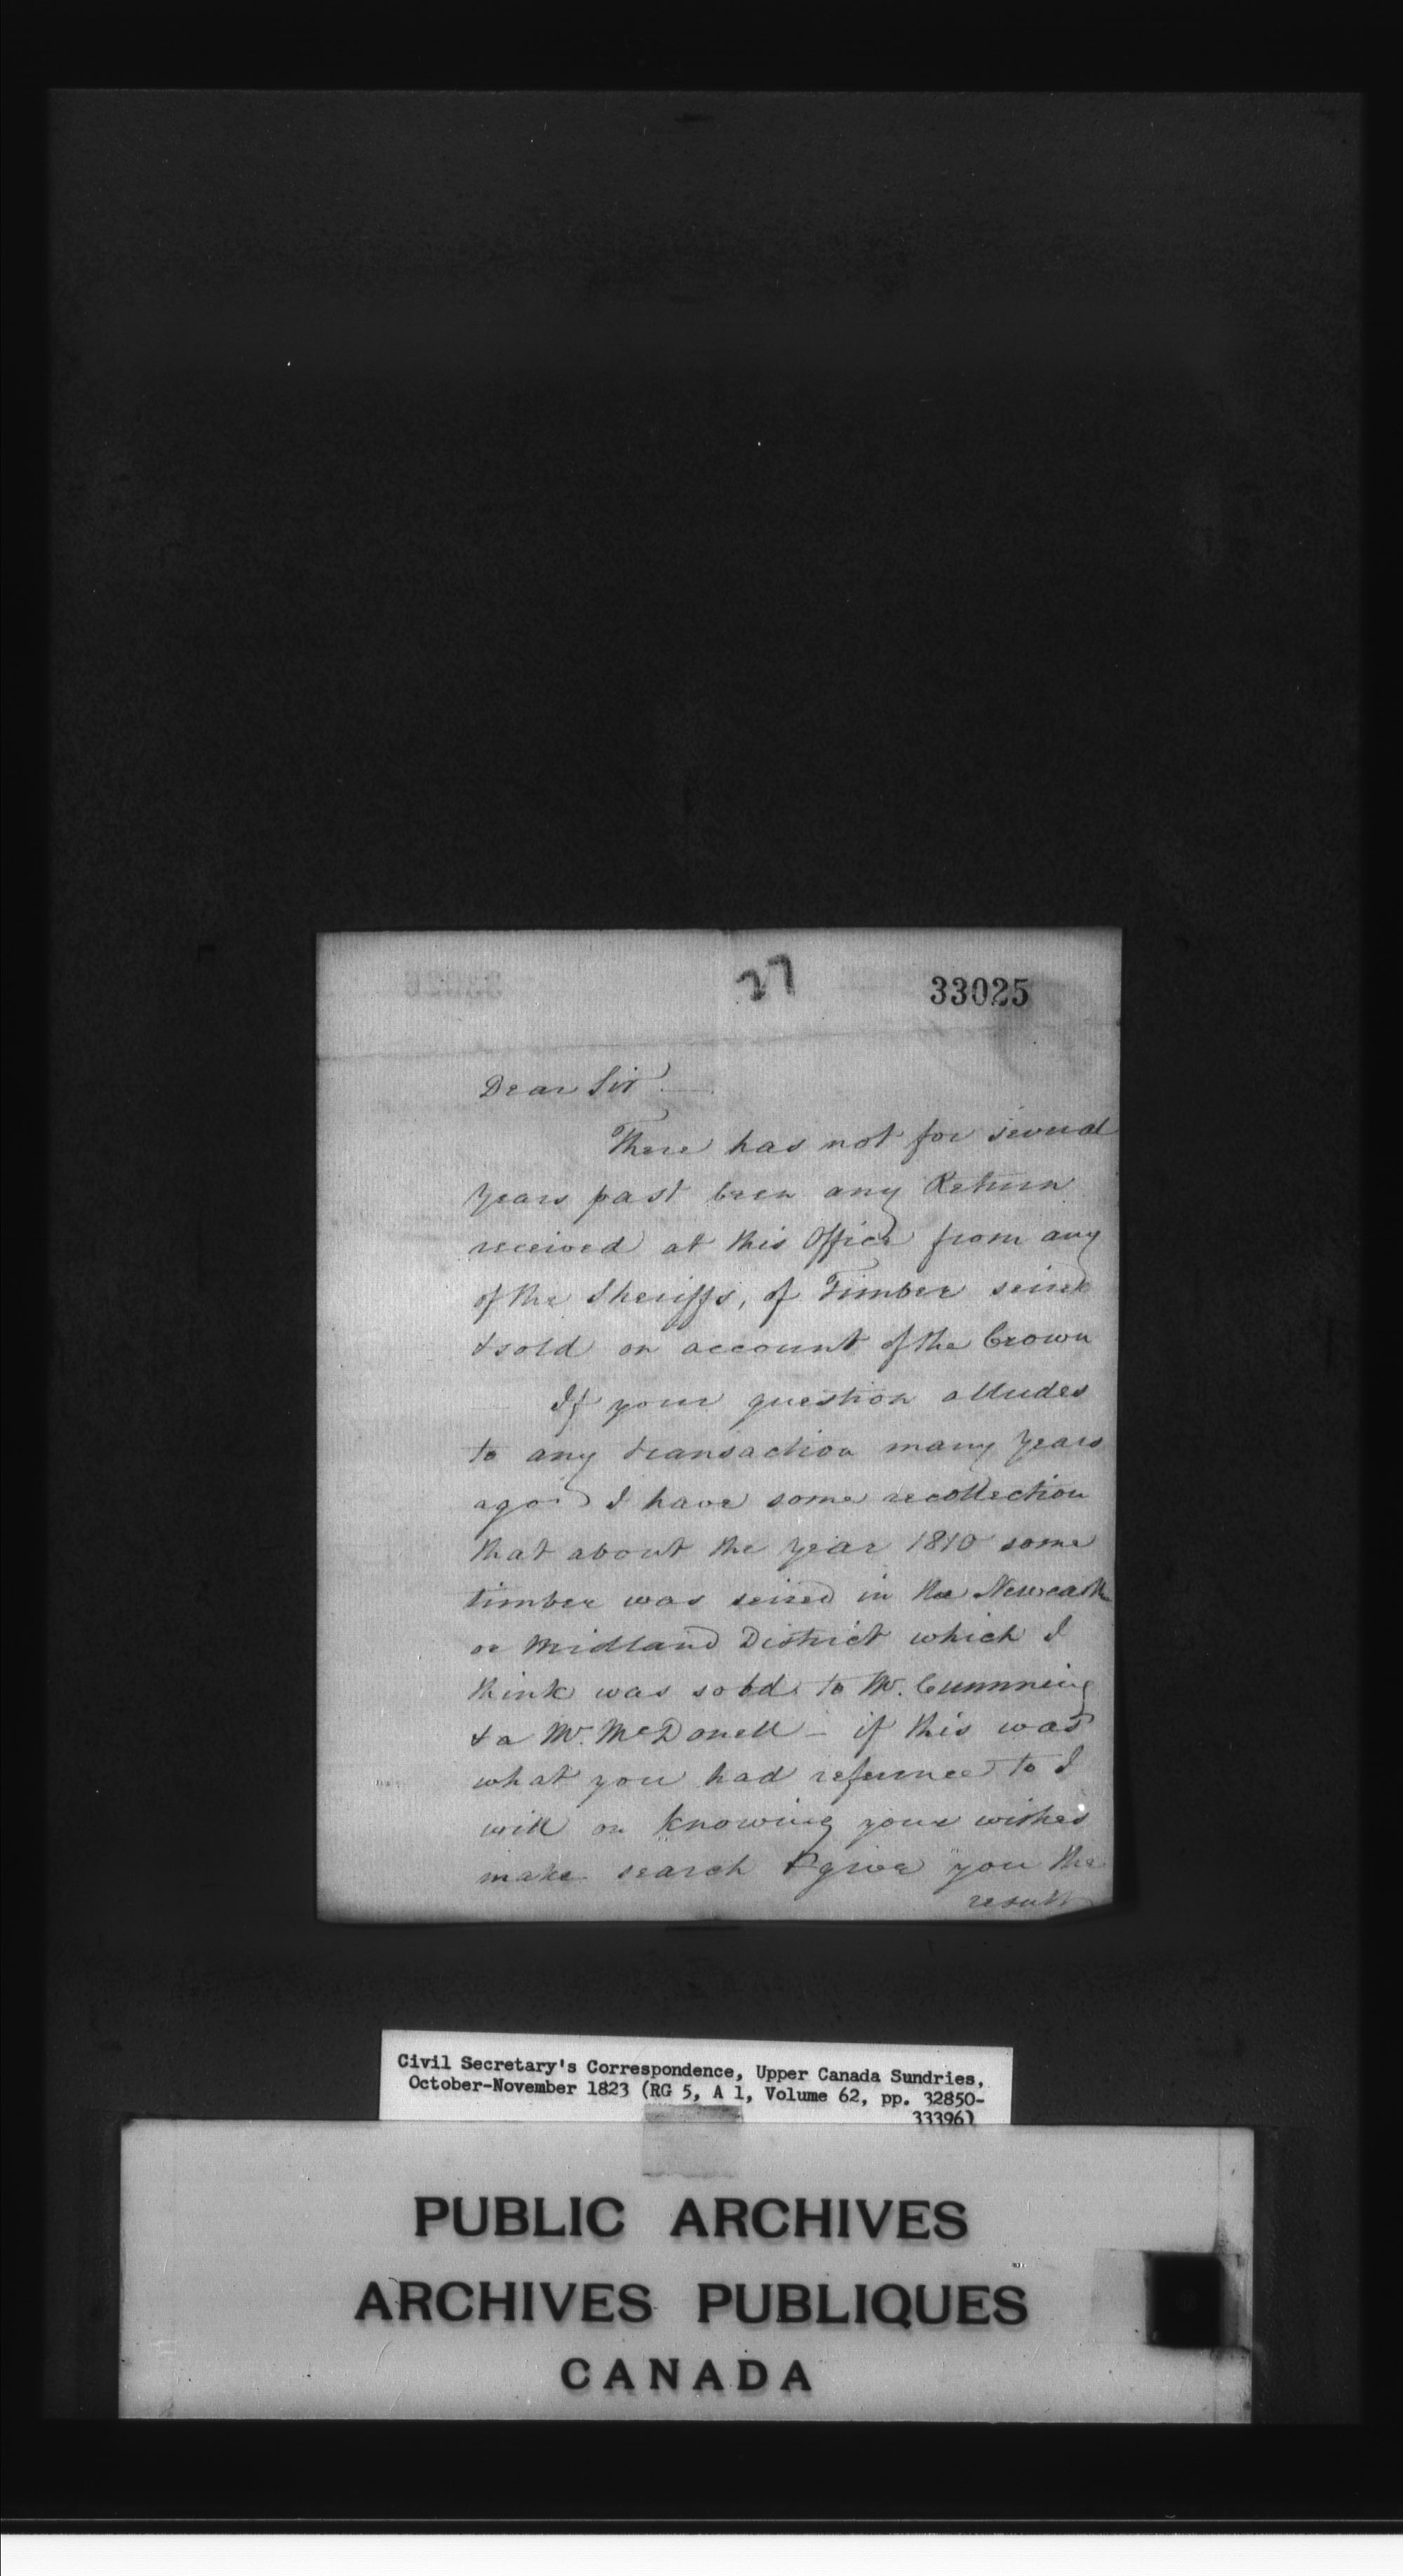 27
33025
Dear Sir
There has not for several
years past been any Return
received at this Office from any
of the Sheriffs, of Timber seized
& sold on account of the Crown
If your question alludes
to any transaction many years
ago I have some recollection
that about the year 1810 some
timber was seized in the Newcastle
or Midland District which I
think was sold to Mr. Cumming
& a Mr. McDonell - if this was
what you had reference to I
will on knowing your wishes
make search & give you the
result
Civil Secretary's Correspondence, Upper Canada Sundries,
October-November 1823 (RG 5, A 1, Volume 62, pp. 32850-
33396)
PUBLIC ARCHIVES
ARCHIVES PUBLIQUES
CANADA